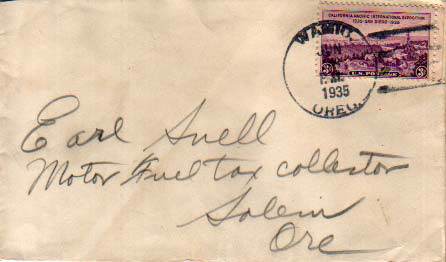 CALIFORNIA PACIFIC INTERNATIONAL EXPOSITION
1935-SAN DIEGO-1936
3¢ 3¢
U.S. POSTAGE
JUN
1935
OREG.
Earl Snell
Motor Fuel tax collector
Salem
Ore